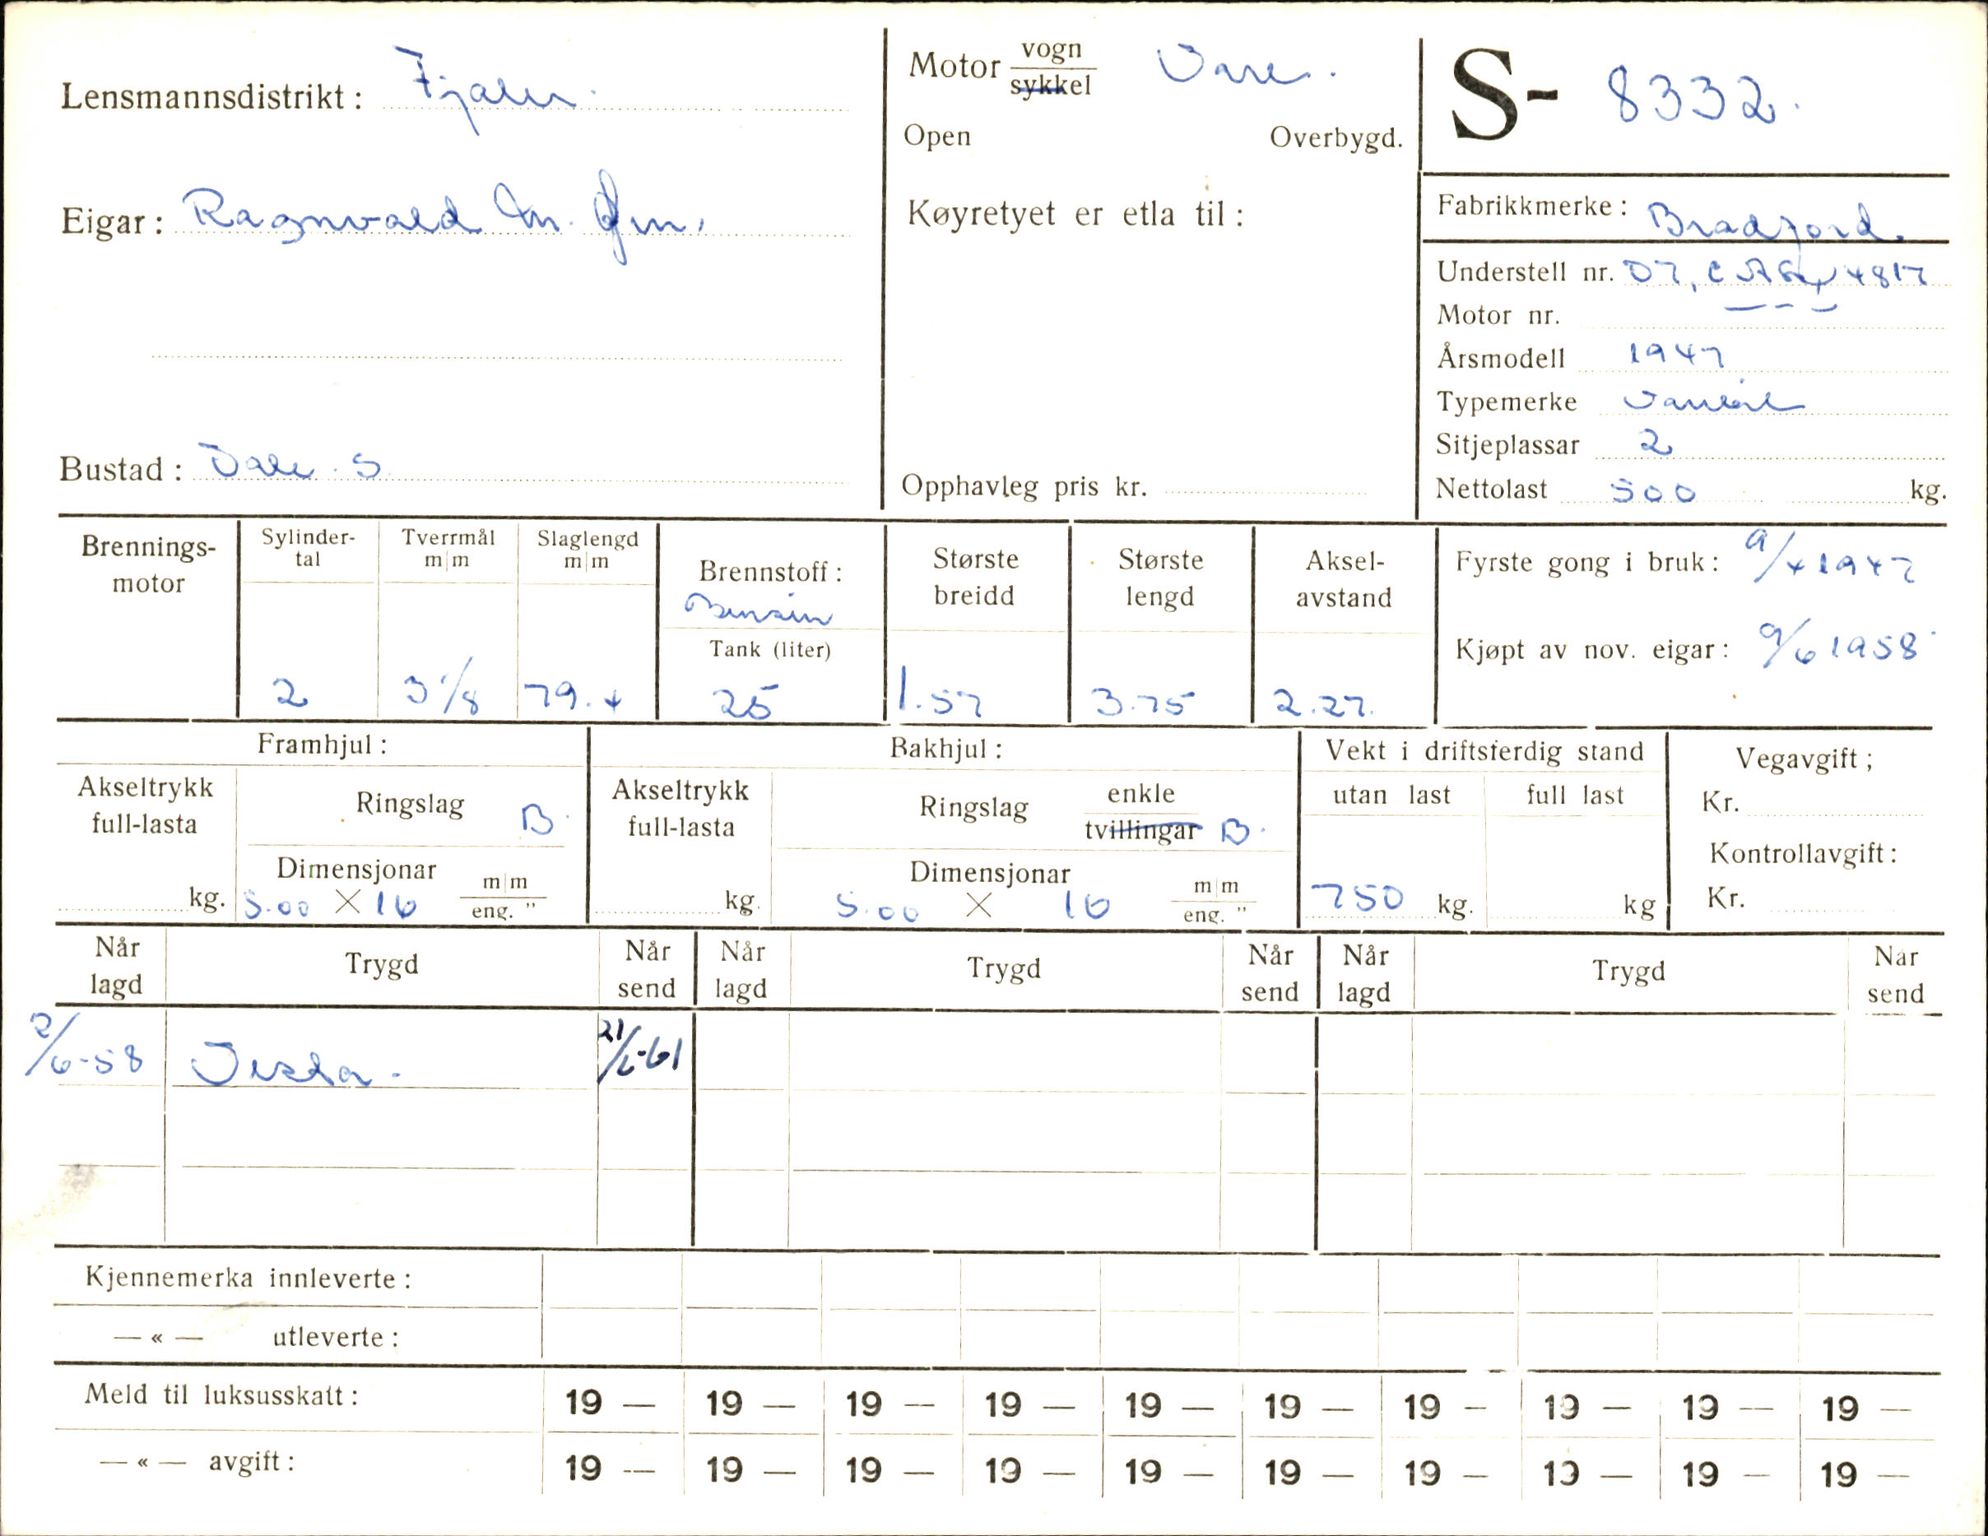 Lensmannsdistrikt: Fjaler.
Eigar: Ragnvald M. Øen.
Bustad: Dale S
Motor vogn
sykkel Vare.
Open Overbygd.
Køyretyet er etla til:
Opphavleg pris kr.
S- 8332.
Fabrikkmerke: Bradford.
Understell nr. D7, 4817
Motor nr. — - —
Årsmodell 1947
Typemerke Varebil
Sitjeplassar 2
Nettolast 500 kg.
Brennings-
motor
Sylinder-
tal
2
Tverrmål
m/m
3 1/8
Slaglengd
m/m
79.4
Brennstoff:
Bensin
Tank (liter)
25
Største
breidd
1.57
Største
lengd
3.75
Aksel-
avstand
2.27.
Fyrste gong i bruk: 9/4 1947
Kjøpt av nov. eigar: 9/6 1958
Framhjul:
Akseltrykk
full-lasta
kg.
Ringslag B.
Dimensjonar m/m
5.00 × 16 eng. "
Bakhjul:
Akseltrykk
full-lasta
kg.
Ringslag enkle
tvillingar B.
Dimensjonar m/m
5.00 × 16 eng. "
Vekt i driftsferdig stand
utan last
750 kg.
full last
kg
Vegavgift;
Kr.
Kontrollavgift:
Kr.
Når
lagd
Trygd
Når
send
Når
lagd
Trygd
Når
send
Når
lagd
Trygd
Når
send
2/6-58 Vesta. 21/6-61
Kjennemerka innleverte:
— « — utleverte:
Meld til luksusskatt: 19 — 19 — 19 — 19 — 19 — 19 — 19 — 19 — 19 — 19 —
— « — avgift: 19 — 19 — 19 — 19 — 19 — 19 — 19 — 19 — 19 — 19 —